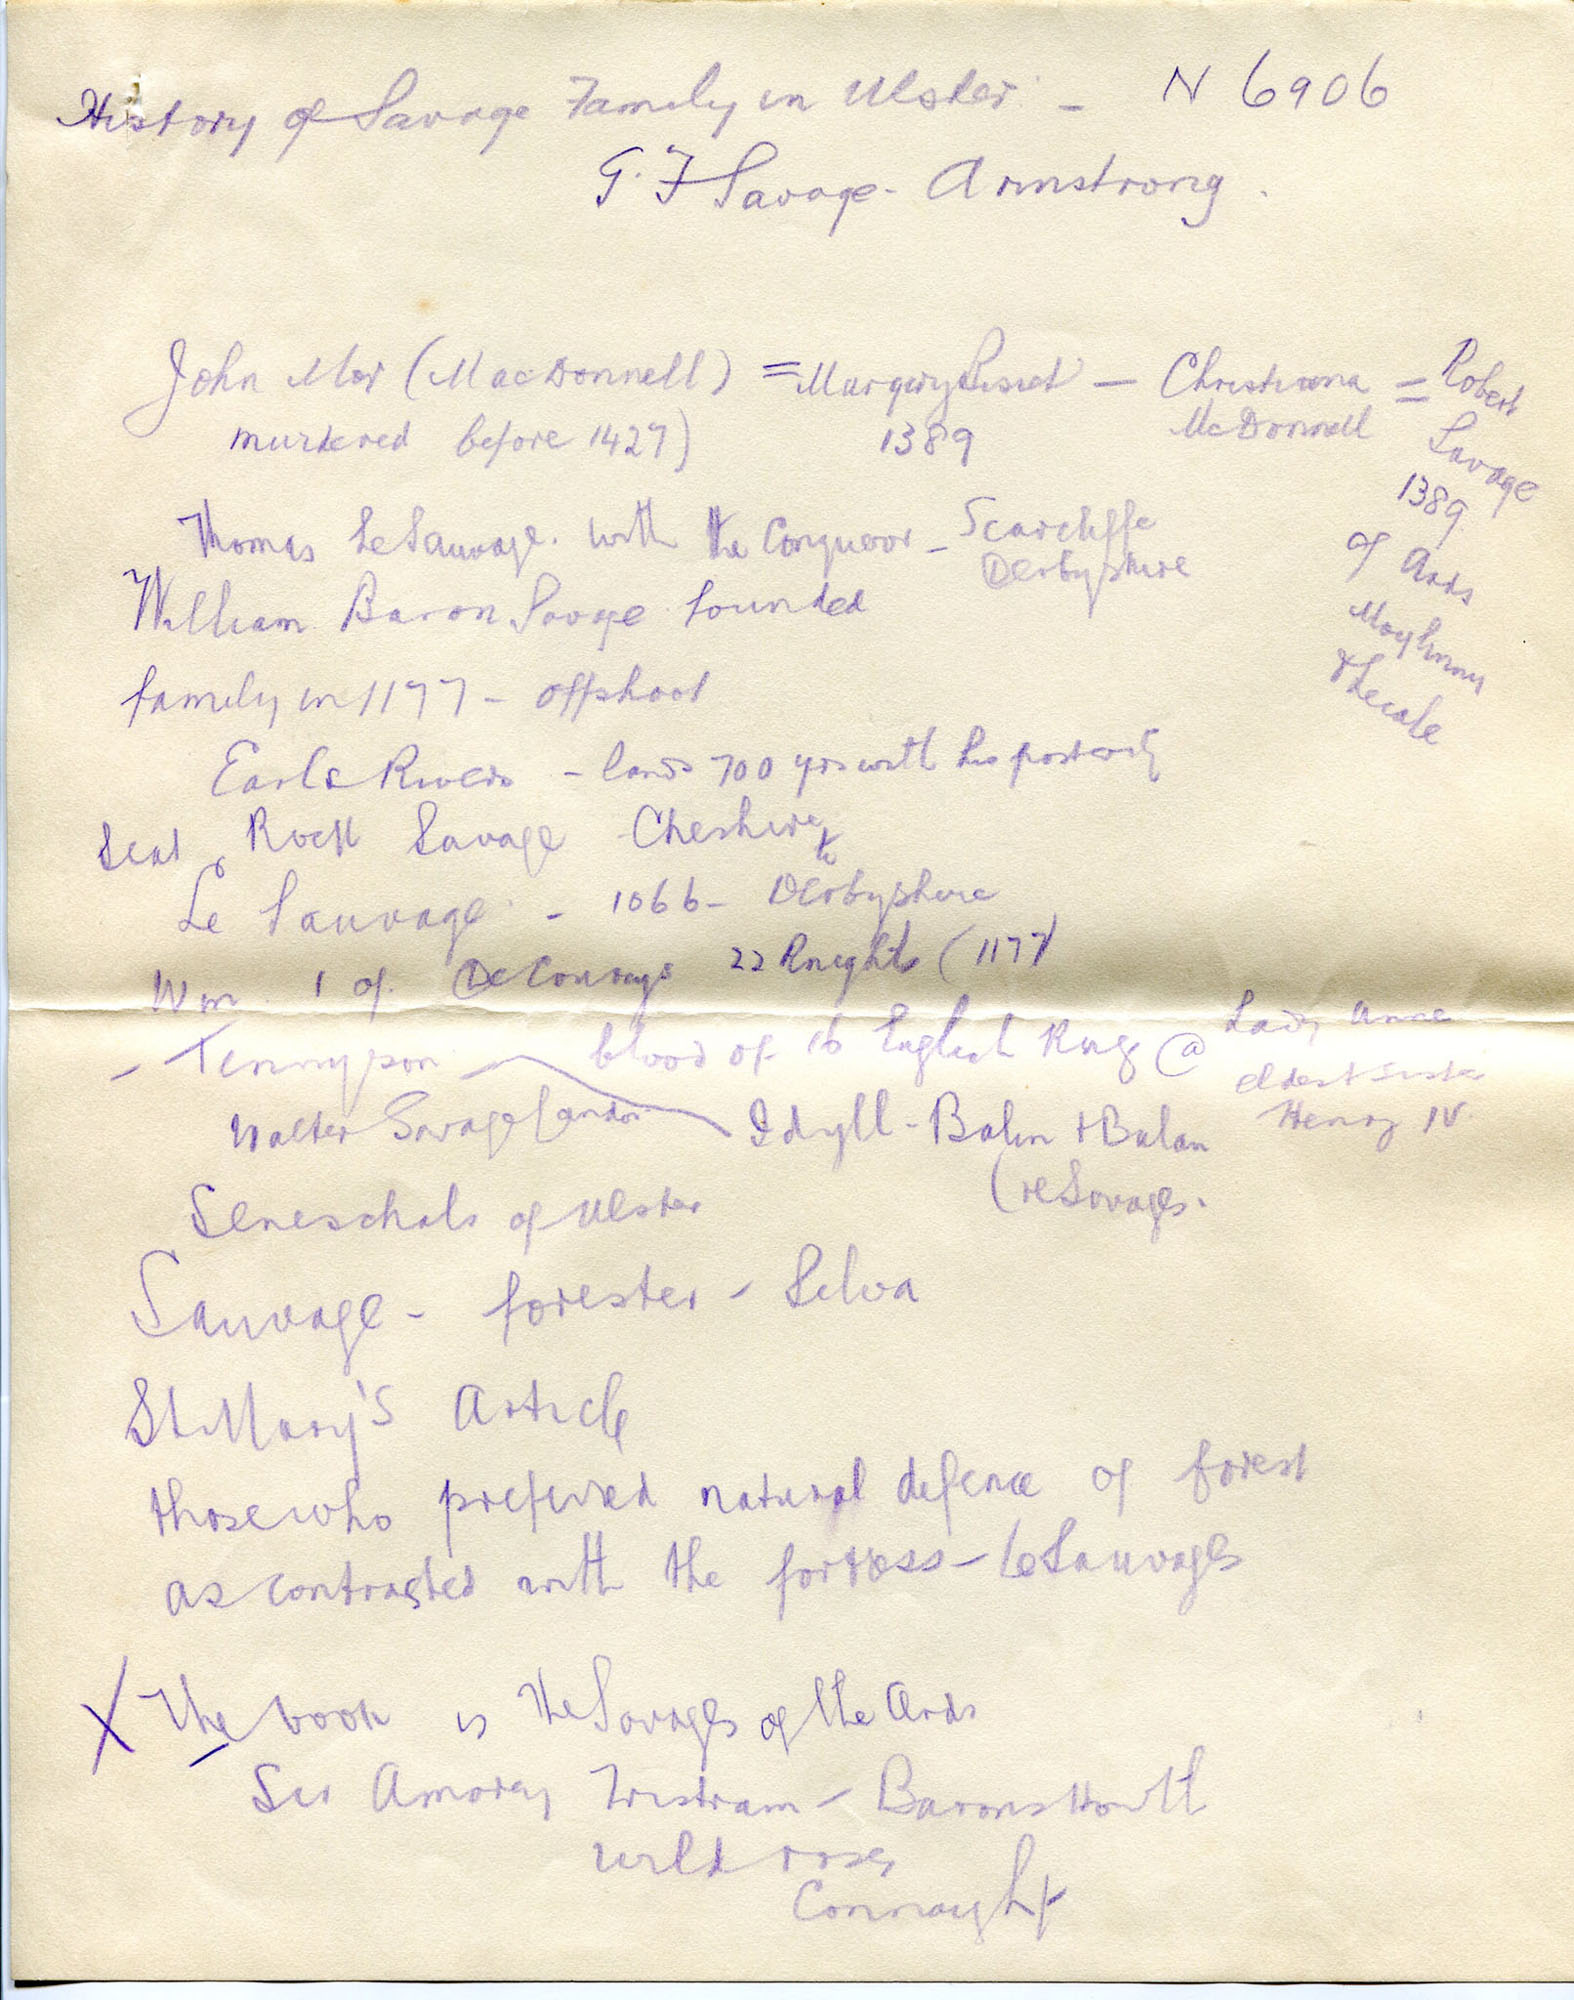 History of Savage Family in Ulster - N 6906
G. F Savage-Armstrong.
John Mor (MacDonnell) = Margery Bisset - Christiana = Robert
murdered before 1427) 1389 McDonnell Savage
1389
of Ards
Moylinny
& Lecale
Thomas LeSauvage. with the Conqueror - Scarcliffe
Derbyshire
William Baron Savage founded
family in 1177 - offshoot
Earls Rivers - lands 700 yrs with his posterity
Seat Rock Savage Cheshire &
Le Sauvage - 1066 - Derbyshire
Wm 1 of DeCourcys 22 Knights (1177)
- Tennyson - blood of 16 English Kings @ Lady Anne
eldest sister
Henry IV.
Walter Savage Landor Idyll - Balin + Balan
(re Savages.
Seneschals of Ulster
Sauvage - forester - Selva
St Mary's Article
those who preferred natural defence of forest
as contrasted with the fortress - LeSauvages
X The book is The Savages of the Ards
Sir Amorey Tristram - Barons Howth
wild roses
Connaught